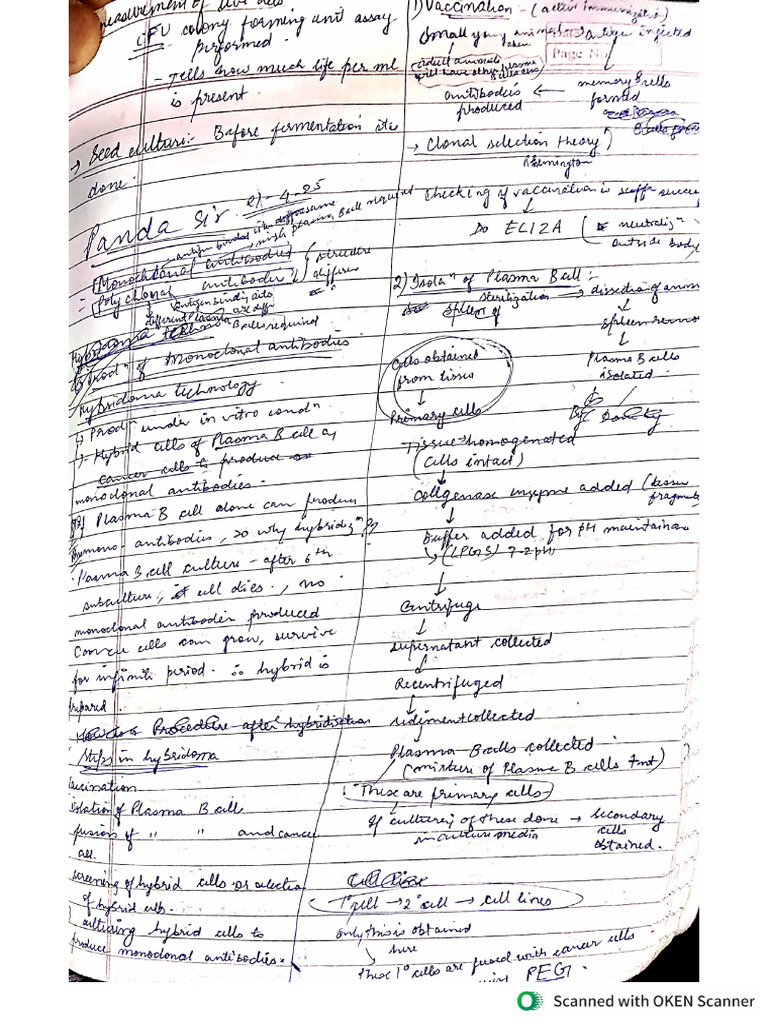 measurement of live cells
CFU colony forming unit assay
performed.
- Tells how much life per ml
is present.
→ Seed culture:- Before fermentation its
done.
Panda Sir 21-4-25
Monoclonal antibodies
Polyclonal antibodies
structure
differ
antigen binding site
different Plasma
B cells required
Prodⁿ of Monoclonal antibodies
Hybridoma technology
→ Prodⁿ under in vitro condⁿ
→ Hybrid cells of Plasma B cell &
cancer cells to produce
monoclonal antibodies.
Plasma B cell alone can produce
mono- antibodies, so why hybridizⁿ
Plasma B cell culture - after 6th
subculture, cell dies., no
monoclonal antibodies produced
Cancer cells can grow, survive
for infinite period. ∴ hybrid is
prepared.
Procedure after hybridisation
Steps in hybridoma
Vaccination
Isolation of Plasma B cell
fusion of " " and cancer
cell.
screening of hybrid cells or selection
of hybrid cells.
culturing hybrid cells to
produce monoclonal antibodies.
1) Vaccination - (active immunization)
Small young animal → antigen injected
taken
Page No.
(adult animals
will have other plasma
B cells also)
antibodies ← memory B cells
produced formed
→ Clonal selection theory
checking if vaccination is success
↓
Do ELIZA ( neutralizⁿ
outside body
2) Isolaⁿ of Plasma B cell:-
sterilization → dissection of animal
Spleen of
↓
Spleen remove
↓
Plasma B cells
isolated.
Cells obtained
from tissue
↓
Primary cells
Tissue homogenated
(cells intact)
↓
Collgenase enzyme added (tissue
fragments
↓
Buffer added for pH maintainance
↳ (PBS) 7.2 pH
↓
Centrifuge
↓
Supernatant collected
↓
Recentrifuged
↓
sediment collected
↓
Plasma-B cells collected
(mixture of Plasma B cells
(These are primary cells)
If culturing of these done → Secondary
in culture media cells
obtained.
Cell lines
1° cell → 2° cell → cell lines
only this is obtained
here
↳ these 1° cells are fused with cancer cells
using PEG.
Scanned with OKEN Scanner